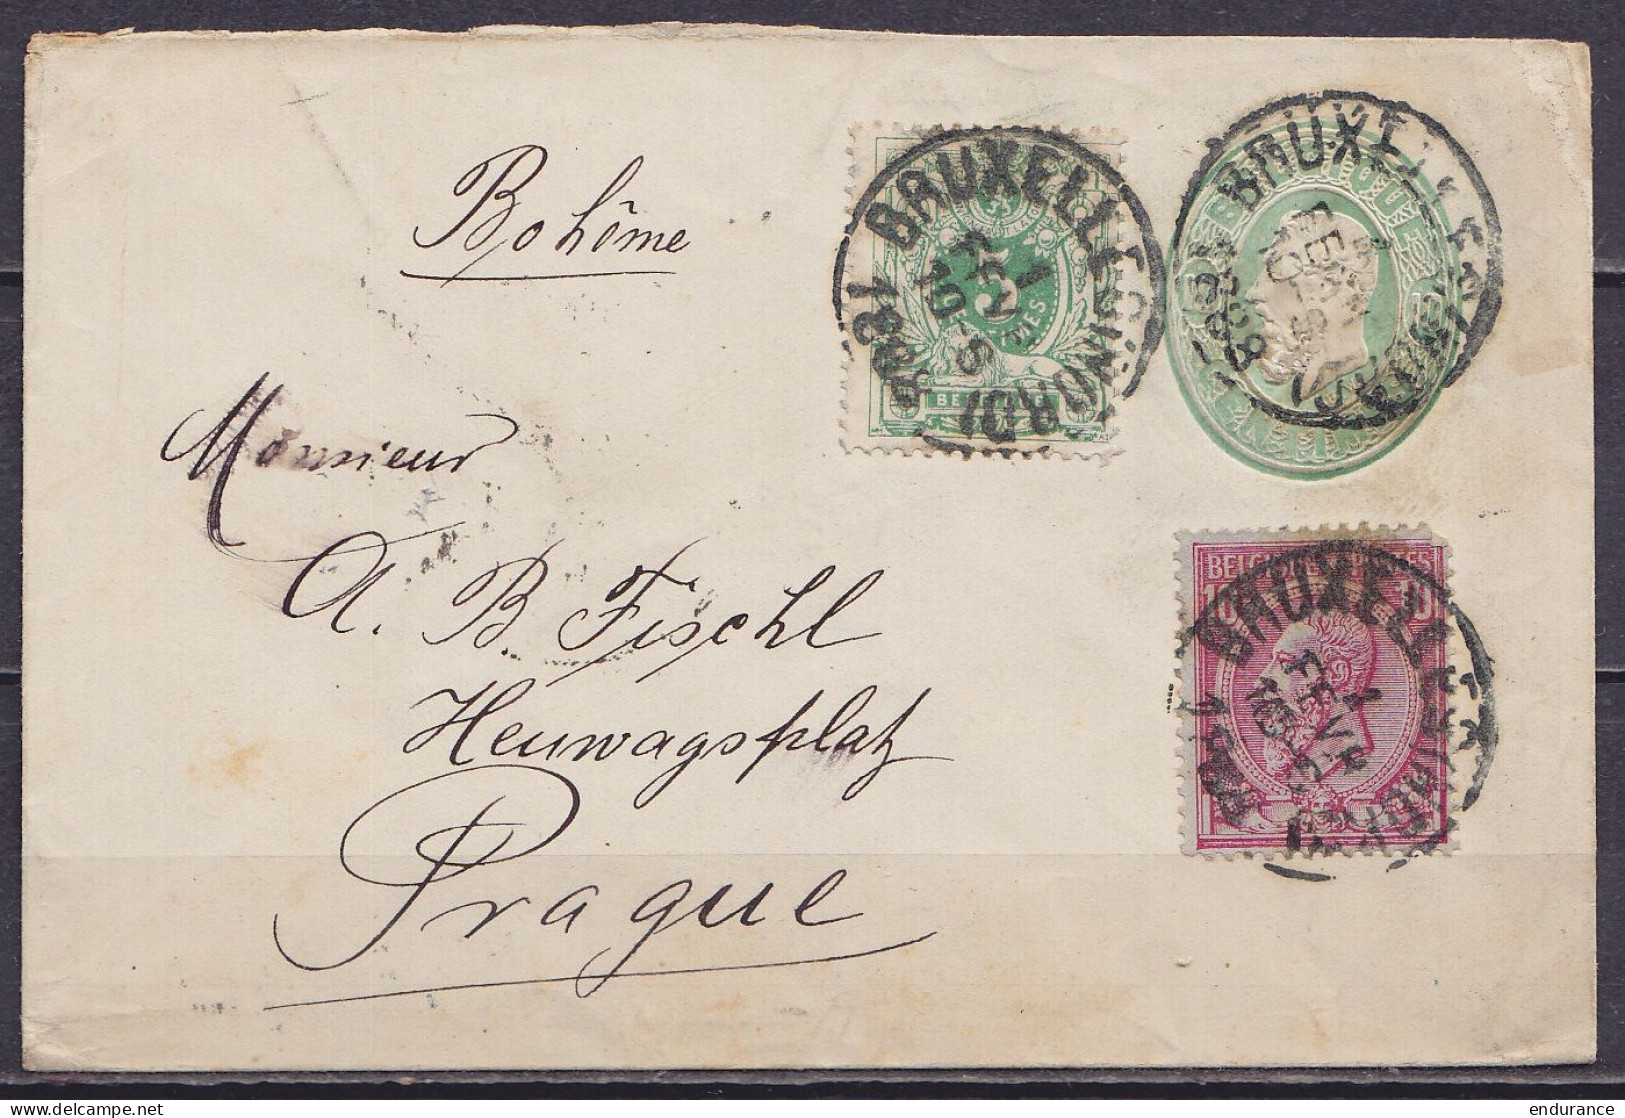 Bohême
Monsieur
A. B. Fischl
Heuwagsplatz
Prague
BRUXELLES (NORD)
1 FEVR
5
BRUXELLES
BELGIQUE POSTES
10
BRUXELLES
1
FEVR
delcampe.net
endurance